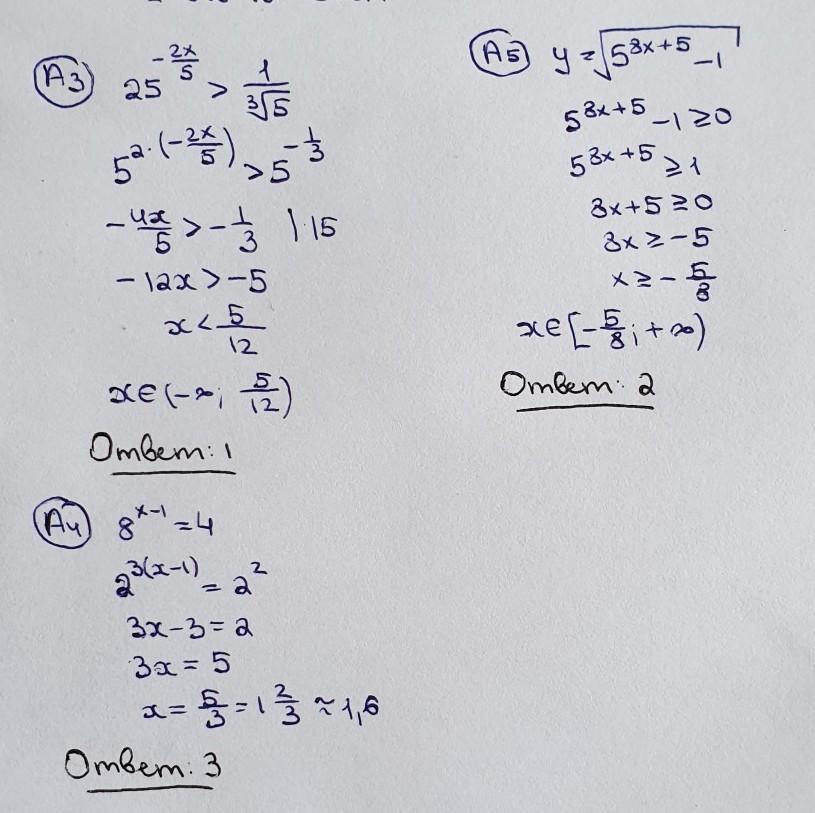 A3 25^(-2x/5) > 1/∛5
5^(2·(-2x/5)) > 5^(-1/3)
-4x/5 > -1/3 |·15
-12x > -5
x < 5/12
x∈(-∞; 5/12)
Ответ: 1
A4 8^(x-1) = 4
2^(3(x-1)) = 2^2
3x-3 = 2
3x = 5
x = 5/3 = 1 2/3 ≈ 1,6
Ответ: 3
A5 y = √(5^(8x+5) - 1)
5^(8x+5) - 1 ≥ 0
5^(8x+5) ≥ 1
8x+5 ≥ 0
8x ≥ -5
x ≥ -5/8
x∈[-5/8; +∞)
Ответ: 2